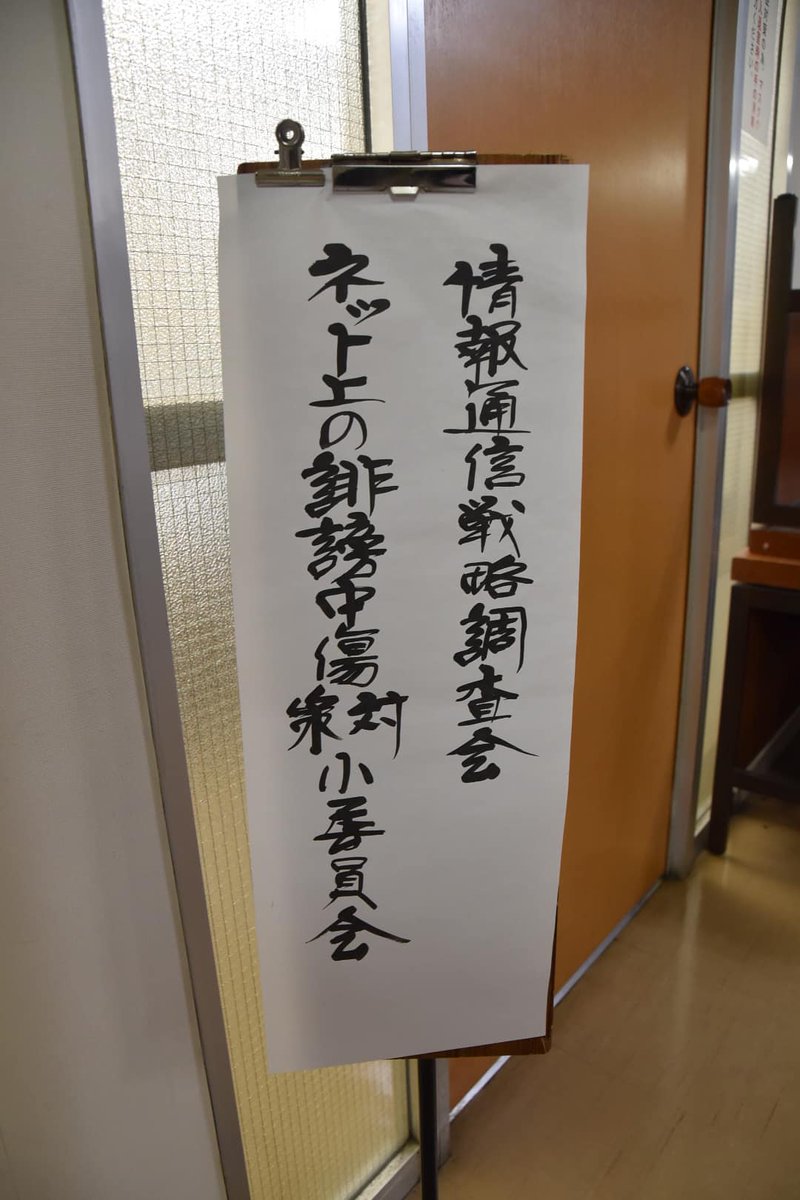 情報通信戦略調査会
ネット上の誹謗中傷対策小委員会